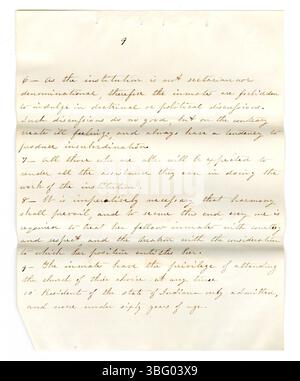 9
6 – As the institution is not sectarian or
denominational, therefore the inmates are forbidden
to indulge in doctrinal or political discussions.
Such discussions do no good, but on the contrary
create ill feelings and always have a tendency to
produce insubordination
7 – All those who are able will be expected to
render all the assistance they can in doing the
work of the institution.
8 – It is imperatively necessary that harmony
shall prevail, and to secure this end every one is
required to treat her fellow inmate with courtesy
and respect and the matron with the consideration
to which her position entitles her.
9 – The inmates have the privilege of attending
the church of their choice at any time
10 Residents of the state of Indiana only admitted,
and none under sixty years of age.
alamy
Image ID: 3BG03X9
www.alamy.com